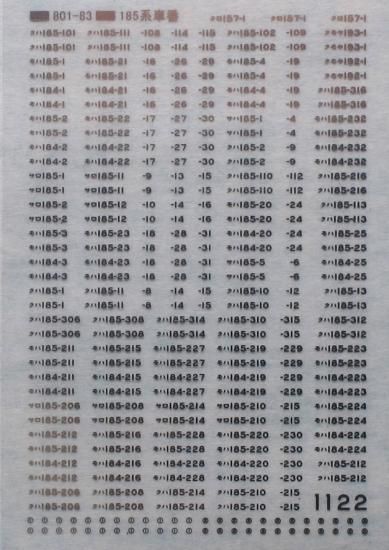 801-83 185系車番 クロ157-1 クロ157-1 クロ157-1
クハ185-101 クハ185-111 -108 -114 -115 クハ185-102 -109 クモヤ193-1
クハ185-101 クハ185-111 -108 -114 -115 クハ185-102 -109 クモヤ193-1
モハ185-1 モハ185-21 -16 -26 -29 モハ185-4 -19 クモヤ192-1
モハ185-1 モハ185-21 -16 -26 -29 モハ185-4 -19 クモヤ192-1
モハ184-1 モハ184-21 -16 -26 -29 モハ184-4 -19 クハ185-316
モハ184-1 モハ184-21 -16 -26 -29 モハ184-4 -19 クハ185-316
モハ185-2 モハ185-22 -17 -27 -30 サハ185-1 -4 モハ185-232
モハ185-2 モハ185-22 -17 -27 -30 サハ185-1 -4 モハ185-232
モハ184-2 モハ184-22 -17 -27 -30 サハ185-2 -9 モハ184-232
モハ184-2 モハ184-22 -17 -27 -30 サハ185-2 -9 モハ184-232
サロ185-1 サロ185-11 -9 -13 -15 クハ185-110 -112 クハ185-216
サロ185-1 サロ185-11 -9 -13 -15 クハ185-110 -112 クハ185-216
サロ185-2 サロ185-12 -10 -14 -16 モハ185-20 -24 クハ185-113
サロ185-2 サロ185-12 -10 -14 -16 モハ185-20 -24 クハ185-113
モハ185-3 モハ185-23 -18 -28 -31 モハ184-20 -24 モハ185-25
モハ185-3 モハ185-23 -18 -28 -31 モハ184-20 -24 モハ185-25
モハ184-3 モハ184-23 -18 -28 -31 サハ185-5 -6 モハ184-25
モハ184-3 モハ184-23 -18 -28 -31 サハ185-5 -6 モハ184-25
クハ185-1 クハ185-11 -8 -14 -15 クハ185-10 -12 クハ185-13
クハ185-1 クハ185-11 -8 -14 -15 クハ185-10 -12 クハ185-13
クハ185-306 クハ185-308 クハ185-314 クハ185-310 -315 クハ185-312
クハ185-306 クハ185-308 クハ185-314 クハ185-310 -315 クハ185-312
モハ185-211 モハ185-215 モハ185-227 モハ185-219 -229 モハ185-223
モハ185-211 モハ185-215 モハ185-227 モハ185-219 -229 モハ185-223
モハ184-211 モハ184-215 モハ184-227 モハ184-219 -229 モハ184-223
モハ184-211 モハ184-215 モハ184-227 モハ184-219 -229 モハ184-223
サロ185-206 サロ185-208 サロ185-214 サロ185-210 -215 モハ185-224
サロ185-206 サロ185-208 サロ185-214 サロ185-210 -215 モハ185-224
モハ185-212 モハ185-216 モハ185-228 モハ185-220 -230 モハ184-224
モハ185-212 モハ185-216 モハ185-228 モハ185-220 -230 モハ184-224
モハ184-212 モハ184-216 モハ184-228 モハ184-220 -230 クハ185-212
モハ184-212 モハ184-216 モハ184-228 モハ184-220 -230 クハ185-212
クハ185-206 クハ185-208 クハ185-214 クハ185-210 -215 1122
クハ185-206 クハ185-208 クハ185-214 クハ185-210 -215